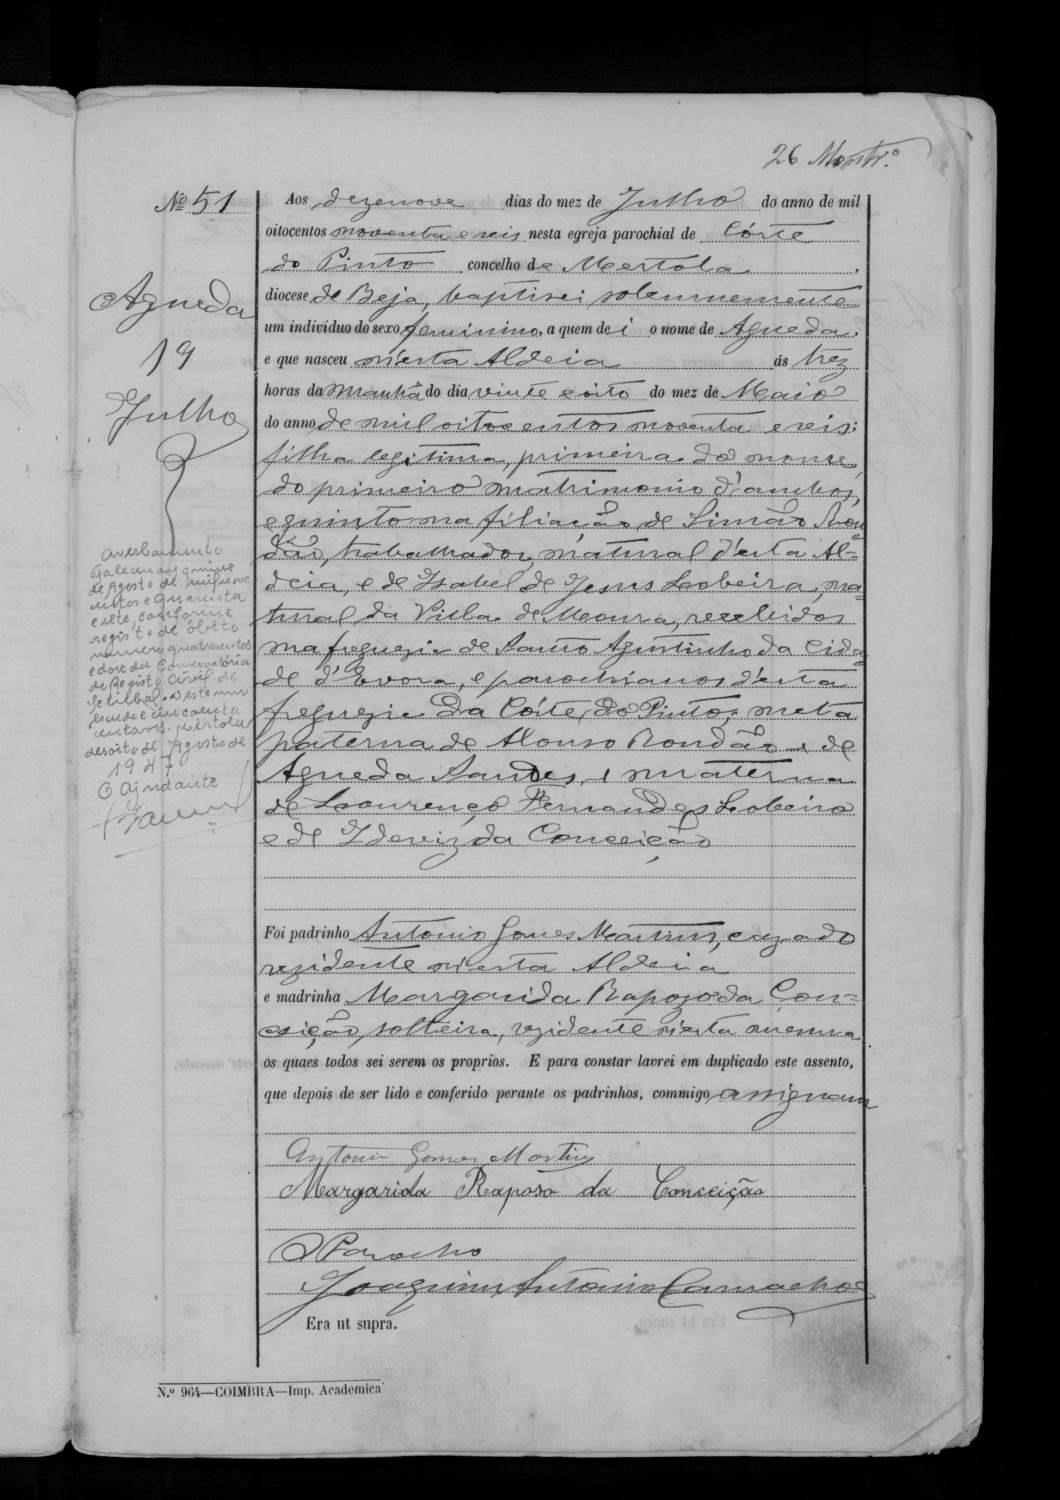 26 Montr.º
Nº 51
Agueda
19
Julho
Aos dezenove dias do mez de Julho do anno de mil
oitocentos noventa e seis nesta egreja parochial de Côrte
do Pinto concelho de Mertola,
diocese de Beja, baptisei solemnemente
um individuo do sexo feminino, a quem dei o nome de Agueda,
e que nasceu n'esta Aldeia ás trez
horas da manhã do dia vinte e oito do mez de Maio
do anno de mil oitocentos noventa e seis:
filha legitima, primeira do nome,
do primeiro matrimonio d'ambos,
e quinto na filiação de Simão Ron-
dão, trabalhador, natural d'esta Al-
deia, e de Izabel de Jesus Lobeira, na-
tural da Villa de Moura, recebidos
na freguezia de Santo Agostinho da Cida-
de d'Evora, e parochianos d'esta
freguezia da Côrte do Pinto; neta
paterna de Afonso Rondão e de
Agueda Sandes, e materna
de Lourenço Fernandes Lobeira
e de da Conceição
averbamento
Faleceu aos quinze
de Agosto de mil nove
centos e quarenta
e sete, conforme
registo de óbito
numero quatrocentos
e doze da Conservatória
do Registo Civil de
Setubal.
escudo e cincoenta
centavos. Mertola,
desoito de Agosto de
1947
O ajudante
Foi padrinho Antonio Gomes Martins, cazado
rezidente n'esta Aldeia
e madrinha Margarida Rapozo da Con-
ceição, solteira, rezidente n'esta mesma
os quaes todos sei serem os proprios. E para constar lavrei em duplicado este assento,
que depois de ser lido e conferido perante os padrinhos, commigo assignam
Antonio Gomes Martins
Margarida Raposo da Conceição
O Parocho
Joaquim Antonio Camacho
Era ut supra.
N.º 964—COIMBRA—Imp. Academica